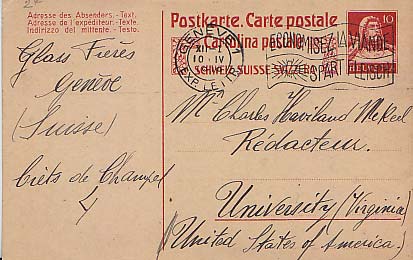 Adresse des Absenders. - Text.
Adresse de l'expéditeur. - Texte.
Indirizzo del mittente. - Testo.
Glass Frères
Genève
(Suisse)
Crêts de Champel
4
Postkarte. Carte postale
Cartolina postale
SCHWEIZ SUISSE SVIZZERA
GENÈVE
XII
10-IV
EXP. LETT.
ECONOMISEZ LA VIANDE
SPART FLEISCH
10
HELVETIA
Mr Charles Haviland Mekeel
Rédacteur.
University (Virginia)
(United States of America.)